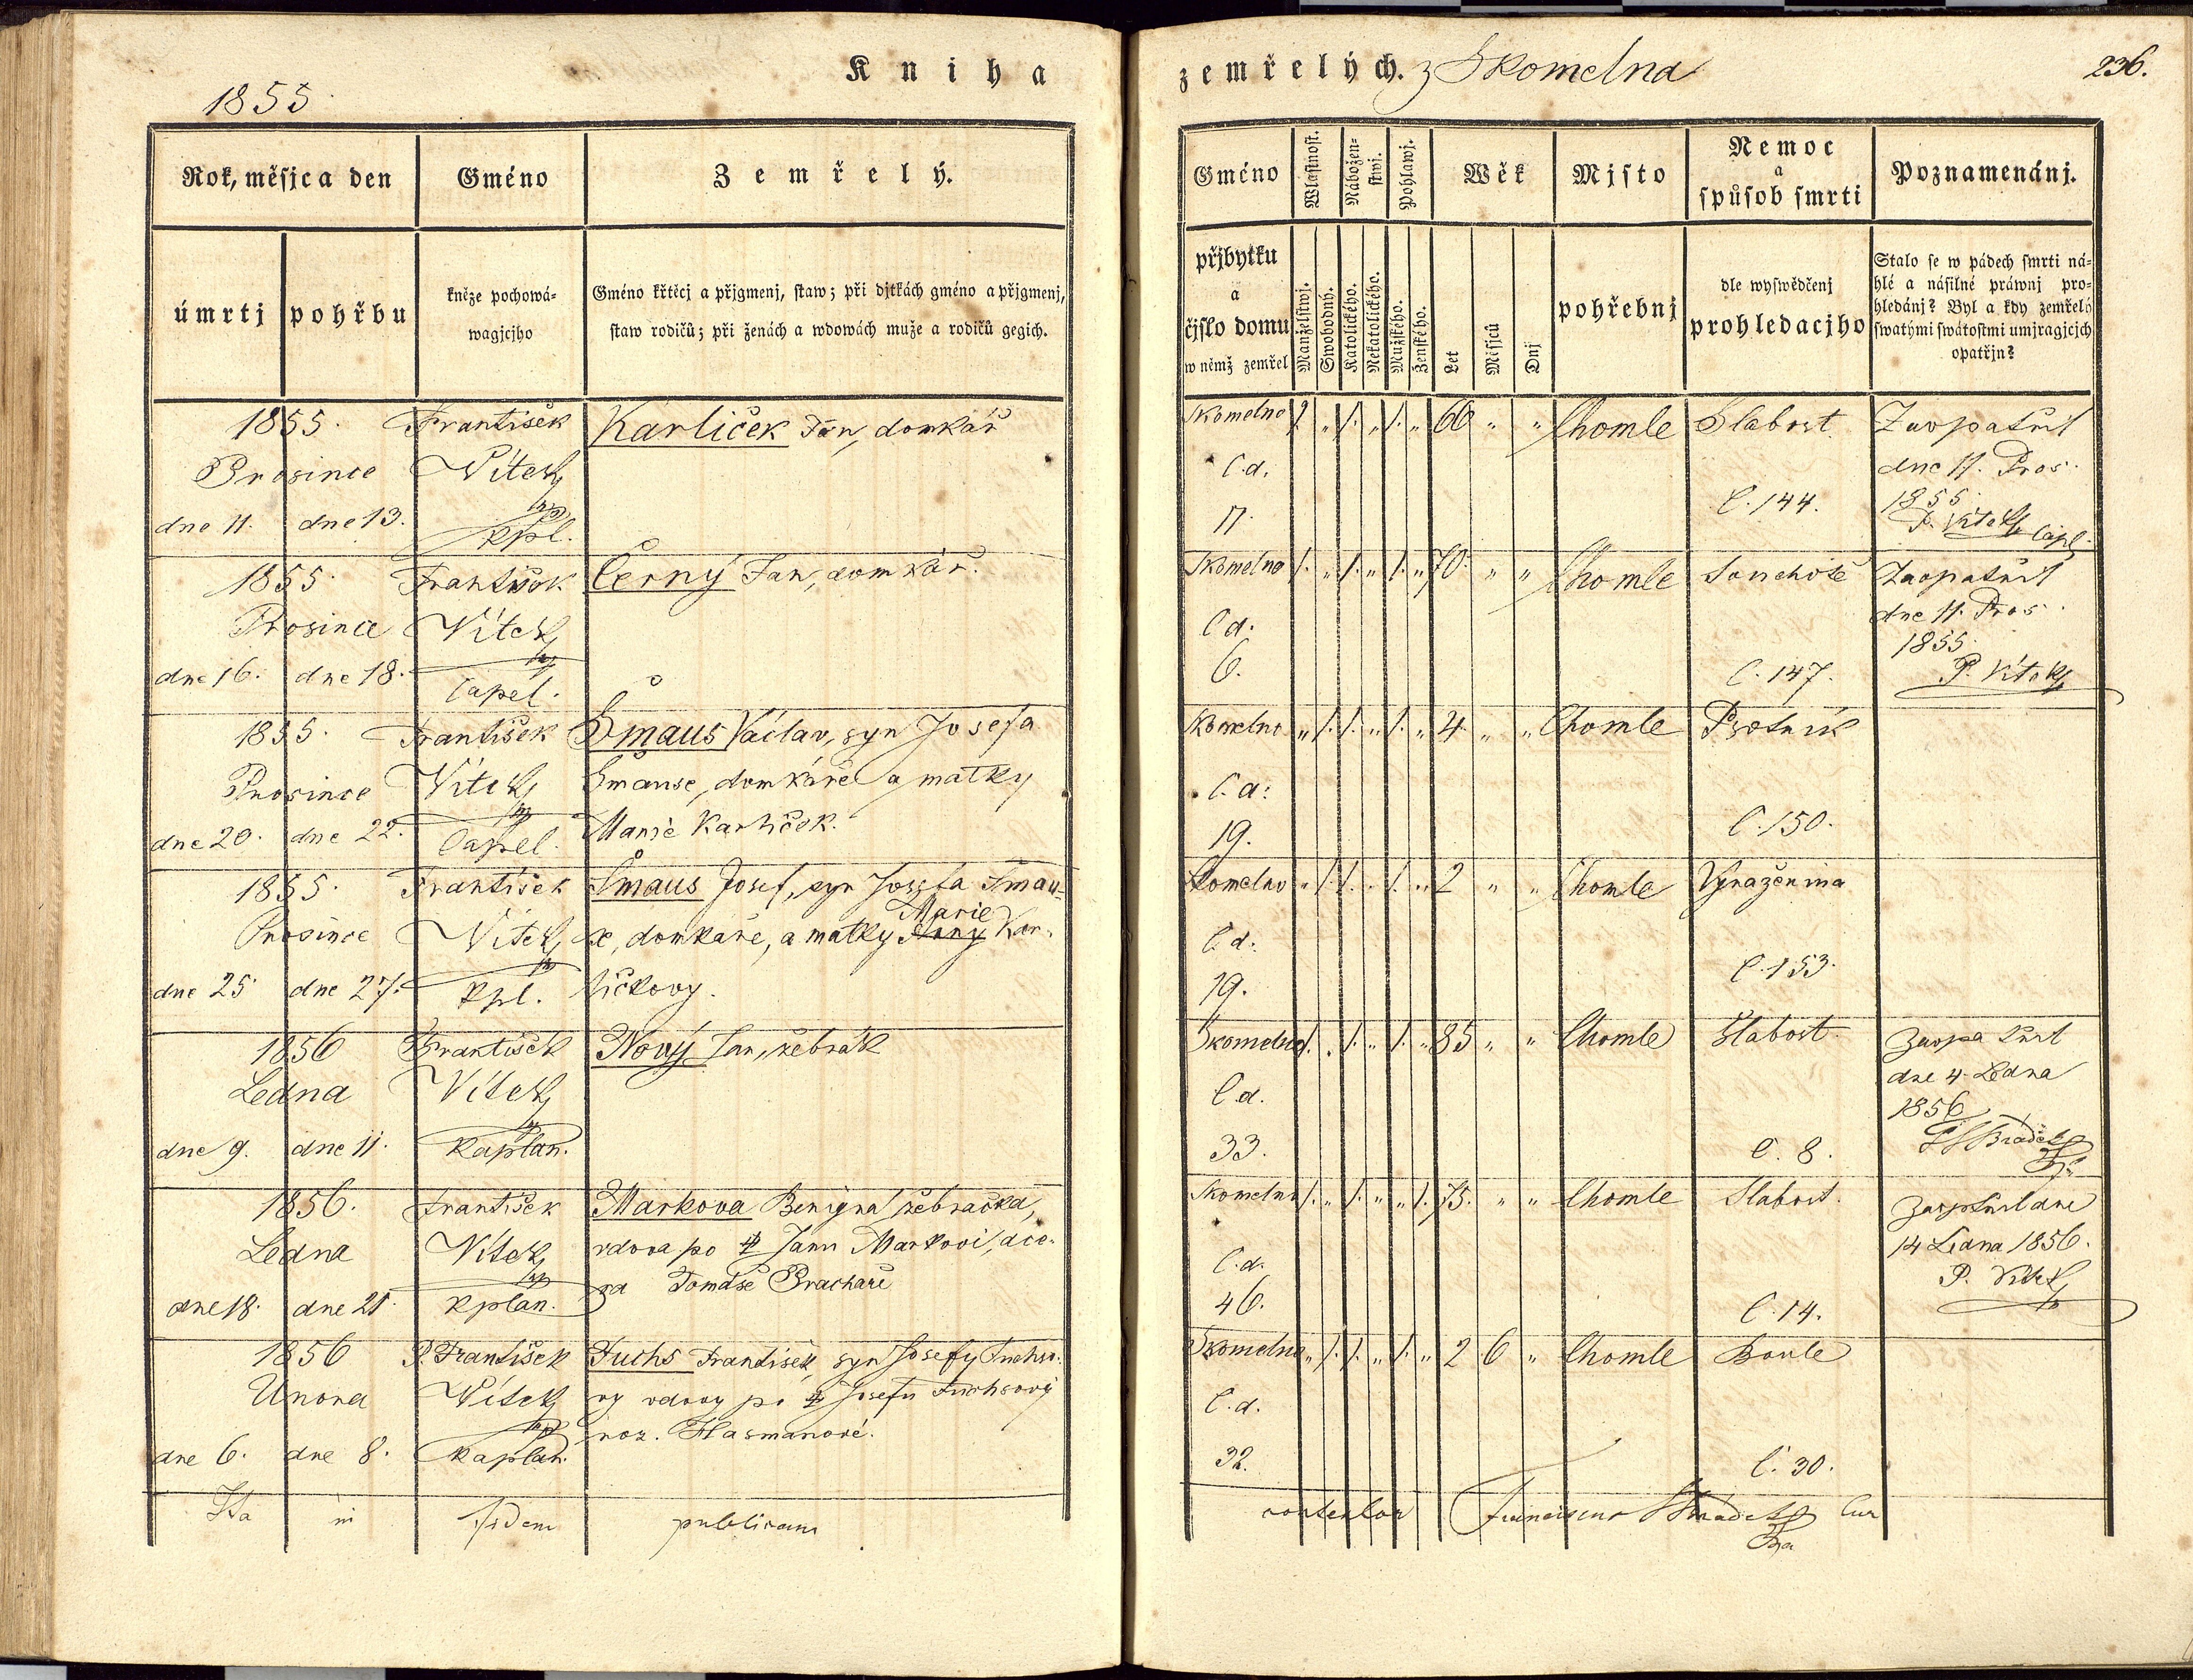 1855
Kniha
Rok, měsjc a den
Gméno
Zemřelý.
úmrtj
pohřbu
kněze pochowá-
wagjcjho
Gméno křtěcj a přjgmenj, staw; při djtkách gméno a přjgmenj,
staw rodičů; při ženách a wdowách muže a rodičů gegich.
1855. František Karliček Jan, domkář
Prosince Vitek
dne 11. dne 13. kpl.
1855. František Černý Jan, domkář.
Prosince Vítek
dne 16. dne 18. Capel.
1855. František Šmaus Václav, syn Josefa
Prosince Vítek Šmause, domkáře a matky
dne 20. dne 22. Capel. Marie Karliček.
1855. František Šmaus Josef, syn Josefa Šmau-
Prosince Vítek se, domkáře, a matky Marie Kar-
dne 25 dne 27. kpl. ličkovy.
1856 František Nový Jan, žebrák
Ledna Vítek
dne 9. dne 11. kaplan.
1856. František Markova Benigna žebračka,
Ledna Vítek vdova po Janu Markovi, dce-
dne 18. dne 21. kplan. ra Tomáše
1856 P. František Fuchs František, syn Josefy Fuchso-
Února Vítek vy vdovy po Josefu Fuchsový
dne 6. dne 8. kaplan. roz. Hasmanové.
Ita in fidem publicam
zemřelých. z Skomelna
236.
Gméno
Wlastnost.
Nábožen-
stwj.
Pohlawj.
Wěk
Mjsto
Nemoc
a
spůsob smrti
Poznamenánj.
přjbytku
a
čjslo domu
w němž zemřel
Manželstwj.
Swobodný.
Katolického.
Nekatolického.
Mužského.
Ženského.
Let
Měsjců
Dnj
pohřebnj
dle wyswědčenj
prohledacjho
Stalo se w pádech smrti ná-
hlé a násilné práwnj pro-
hledánj? Byl a kdy zemřelý
swatými swátostmi umjragjcjch
opatřjn?
Skomelno 1. „ 1. „ 1. „ 66 „ „ Chomle Slabost. Zaopatřil
C.d. dne 11. Pros.
17. C. 144. 1855.
P. Vitek Capl.
Skomelno 1. „ 1. „ 1. „ 70. „ „ Chomle Souchotě Zaopatřil
C.d. dne 11. Pros.
6. C. 147. 1855.
P. Vítek
Skomelno „ 1. 1. „ 1. „ 4. „ „ Chomle Psotník
C.d.
19. C. 150.
Skomelno „ 1. 1. „ 1. „ 2 „ „ Chomle Vyraženina
C.d.
19. C. 153.
Skomelno 1. „ 1. „ 1. „ 85 „ „ Chomle Slabost. Zaopatřil
C.d. dne 4. Ledna
33. C. 8. 1856
Skomelno 1. „ 1. „ „ 1. 75. „ „ Chomle Slabost. Zaopatřil dne
C.d. 14 Ledna 1856.
46. C. 14. P. Vítek
Skomelno „ 1. 1. „ 1. „ 2 6 „ Chomle Boule
C.d.
32. C. 30.
Franciscus Cur